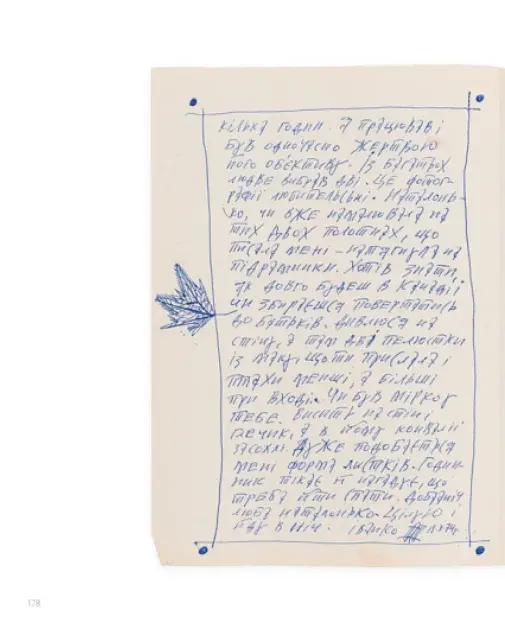 кілька годин. Я працював і
був одночасно жертвою
його об'єктиву. Із багатьох
ледве вибрав дві. Це фотог-
рафії любительські. Наталонь-
ко, чи вже намалювала на
тих двох полотнах, що
писала мені – натягнула на
підрамники. Хотів знати,
як довго будеш в Канаді і
чи збираєшся повертатись
до батьків. Дивлюся на
стіну, а там дві пелюстки
із маку, що ти прислала і
птахи менші, а більші
при вході. Чи був Мірко у
тебе. Висить на стіні
гечик, а в ньому конвалії
засохлі. Дуже подобається
мені форма листків. Годин-
ник тікає й нагадує, що
треба йти спати. Добраніч
люба Наталонько. Цілую і
йду в ніч. Івасько
178